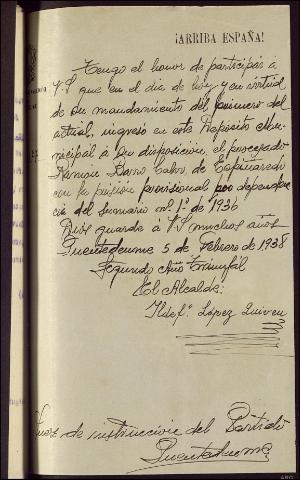 ¡ARRIBA ESPAÑA!
Tengo el honor de participar á
V.S que en el dia de hoy y en virtud
de su mandamiento del primero del
actual, ingresó en este Depósito Mu-
nicipal á su disposicion, el procesado
Ramon Barro Calvo, de
con la prision provisional por dependen-
cia del sumario nº 1º de 1936
Dios guarde á V.S muchos años
Puentedeume 5 de Febrero de 1938
Segundo Año Triunfal
El Alcalde:
Ildefº López
Juez de instruccion del Partido
Puentedeume